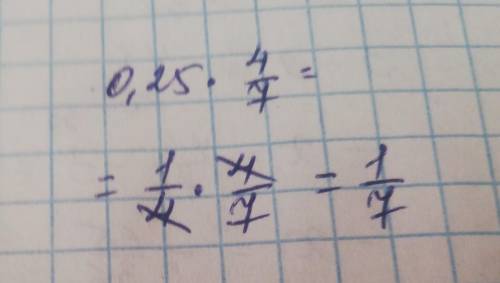 0,25 · 4/7 =
= 1/4 · 4/7 = 1/7